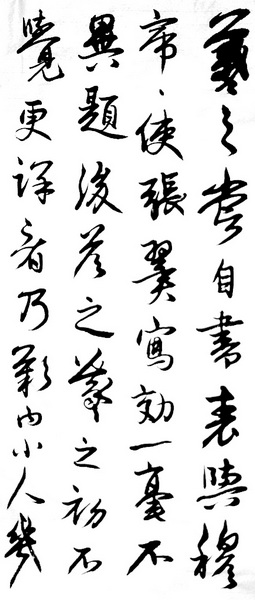 羲之嘗自書表與穆
帝、使張翼寫効一毫不
異題後答之羲之初不
覺更詳看乃歎曰小人幾